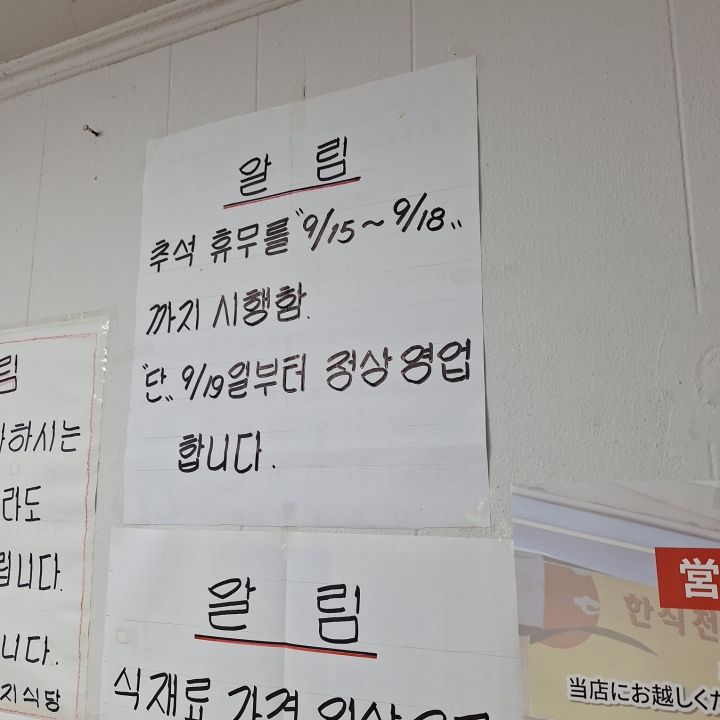 알 림
추석 휴무를 "9/15~9/18"
까지 시행함.
"단" 9/19일부터 정상영업
합니다.
림
하시는
라도
립니다.
니다.
지식당
알 림
식재료 가격 인상으로
営
한식전
当店にお越しくだ